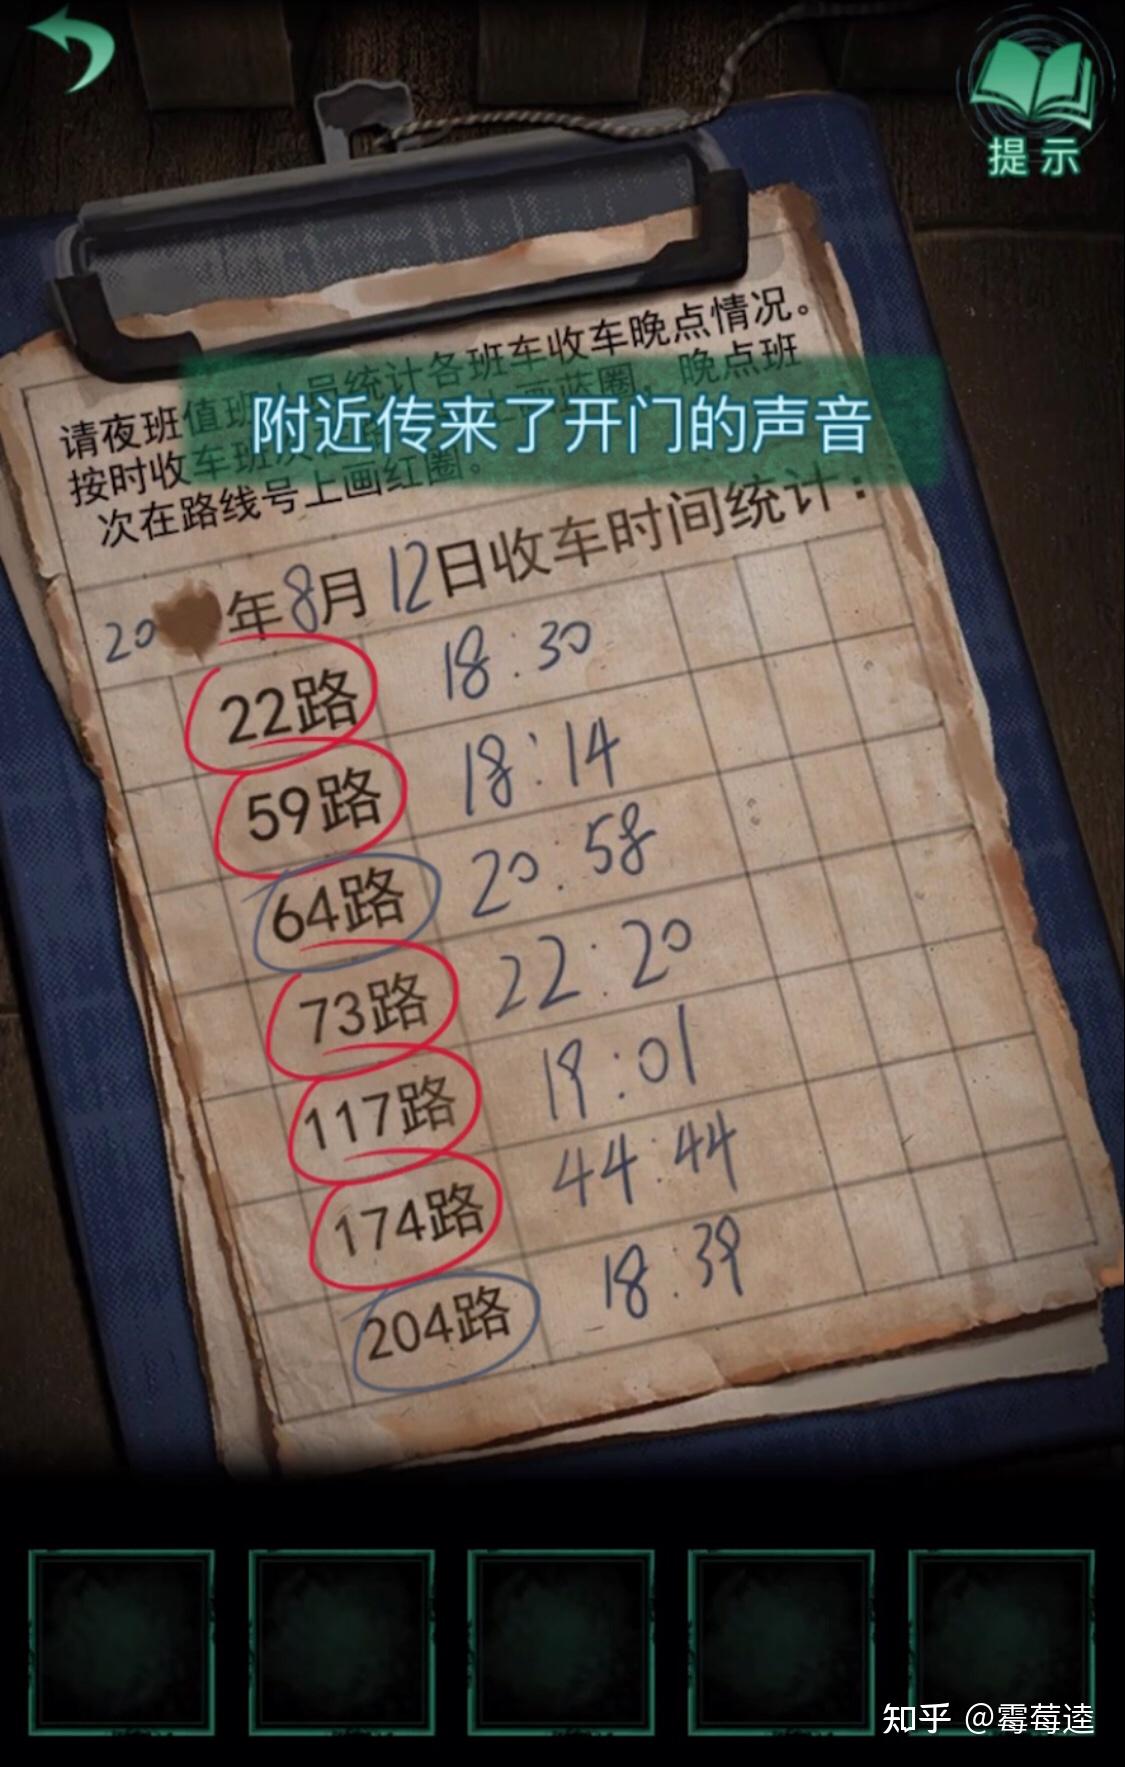 提示
请夜班值班人员统计各班车收车晚点情况。
按时收车班次在路线号上画蓝圈，晚点班
次在路线号上画红圈。
附近传来了开门的声音
20 年8月12日收车时间统计：
22路 18:30
59路 18:14
64路 20:58
73路 22:20
117路 19:01
174路 44:44
204路 18:39
知乎 @霉莓逵